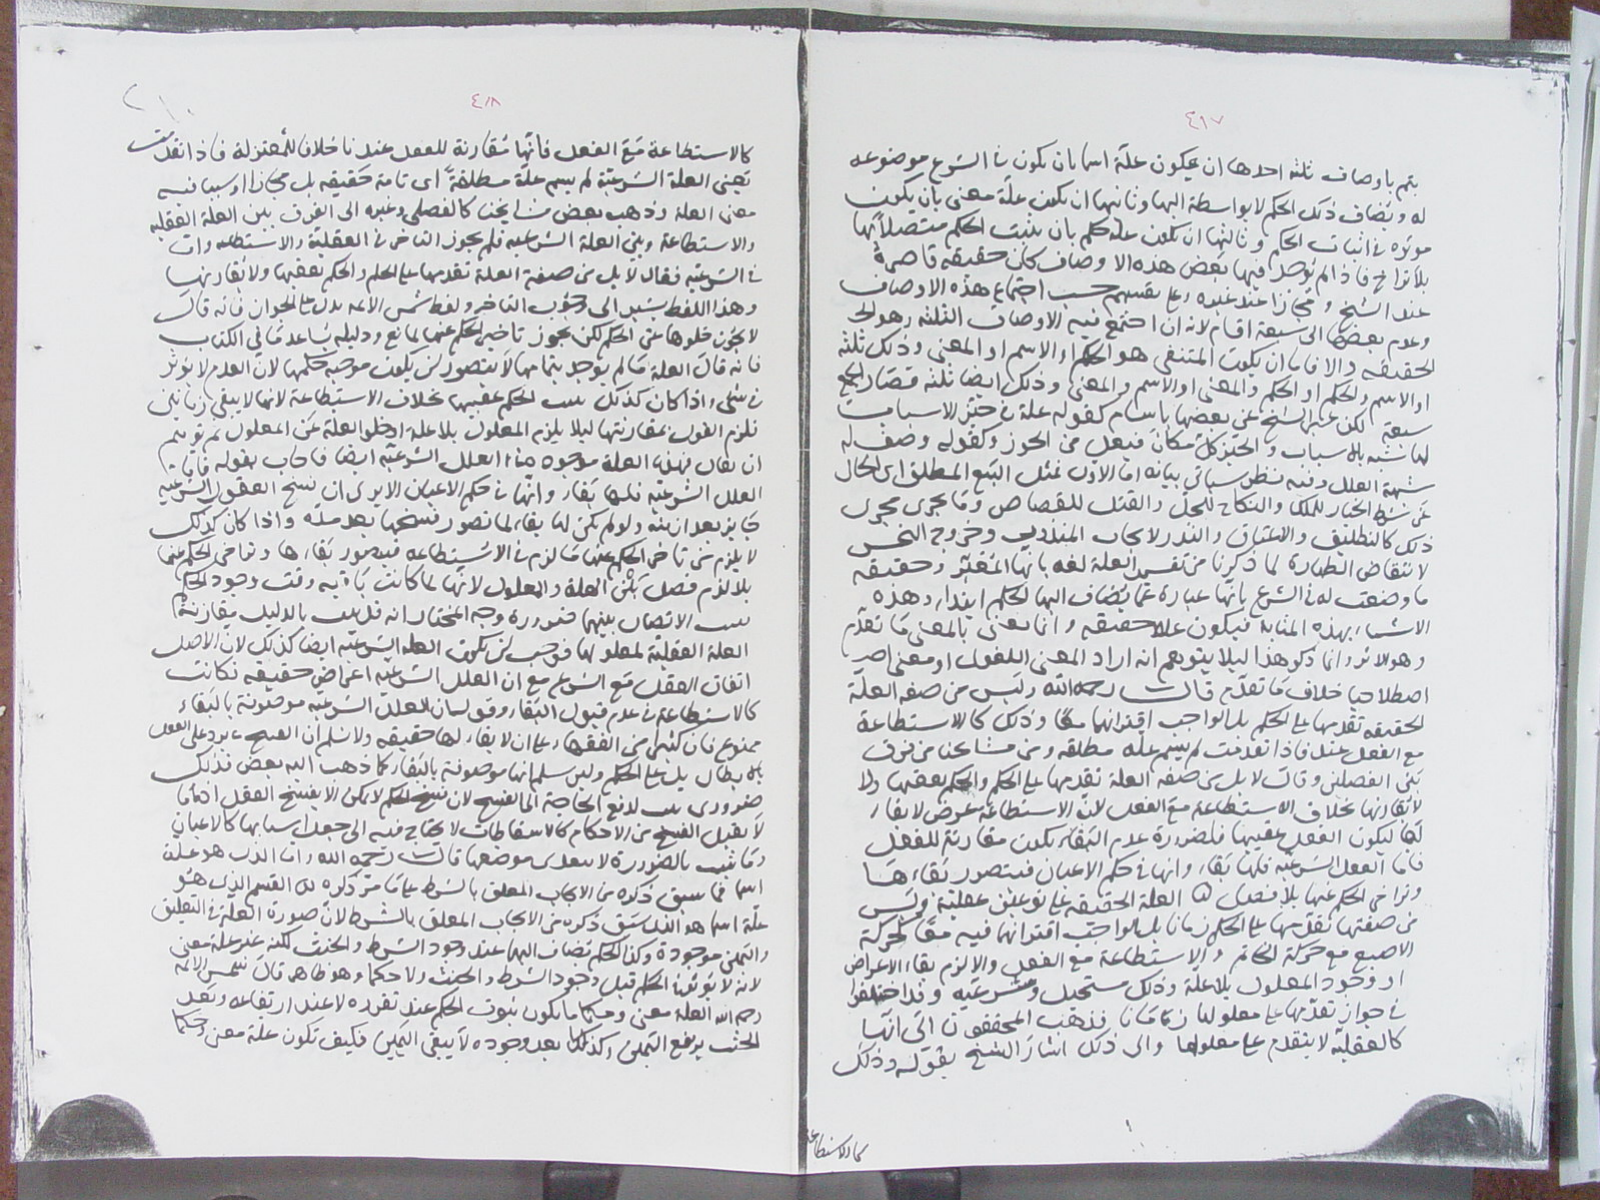 ٤١٧
يتم باوصاف ثلثه احدها ان يكون علة اسما بان تكون فى الشرع موضوعه
له ويضاف ذلك الحكم لا بواسطة اليها وثانيها ان تكون علة معنى بان يكون
موثره فى اثبات الحكم وثالثها ان تكون علة حكم بان يثبت الحكم متصلا بها
بلا تراخ فاذا لم يوجد فيها بعض هذه الاوصاف كان حقيقه قاصرة
عند الشيخ ومجازا عند غيره وعلى تقسيمهم حسب اجتماع هذه الاوصاف
وعدم بعضها الى سبعة اقسام لانه ان اجتمع فيه الاوصاف الثلثه وهو
الحقيقه والا فاما ان يكون المنتفى هو الحكم او الاسم او المعنى وذلك ثلثه
او الاسم والحكم او الحكم والمعنى او الاسم والمعنى وذلك ايضا ثلثه فصار الجمع
سبعة لكن عبر الشيخ عن بعضها باسام كقوله علة فى حيز الاسباب
لها شبه بالاسباب والحيز كل مكان فيعل من الحوز وكقوله وصف له
شبهة العلل وفيه نظر سياتى بيانه اما الاول فمثل البيع المطلق اى الخال
عن شرط الخيار للملك والنكاح للحل والقتل للقصاص وما يجرى مجرى
ذلك كالتطليق والاعتاق والنذر لايجاب المنذور وخروج النجس
لانتقاض الطهارة لما ذكرنا من تفسير العلة لغه بانها المغير وحقيقه
ما وضعت له فى الشرع بانها عبارة عما يضاف اليها الحكم ابتداء وهذه
الاشياء بهذه المثابة فيكون عللا حقيقه وانما يعنى بالمعنى ما تقدم
وهو الاثر وانما ذكر هذا ليلا يتوهم انه اراد المعنى اللغوى او معنى اخر
اصطلاحيا خلاف ما تقدم قال رحمه الله وليس من صفه العلة
الحقيقه تقدمها على الحكم بل الواجب اقترانهما معا وذلك كالاستطاعة
مع الفعل عندنا فاذا تقدمت لم يسم علة مطلقه ومن مشايخنا من فرق
بين الفصلين وقال لا بل من صفه العلة تقدمها على الحكم والحكم يعقبها ولا
يقارنها بخلاف الاستطاعة مع الفعل لان الاستطاعة عرض لا بقاء
لها ليكون الفعل عقيبها فلضرورة عدم البقاء تكون مقارنة للفعل
فاما العلل الشرعيه فلها بقاء وانها فى حكم الاعيان فيتصور بقاءها
وتراخى الحكم عنها بلا فصل العلة الحقيقه على نوعين عقلية وليس
من صفتها تقدمها على الحكم زمانا بل الواجب اقترانهما فيه معا كحركة
الاصبع مع حركة الخاتم والاستطاعة مع الفعل والا لزم بقاء الاعراض
او وجود المعلول بلا علة وذلك مستحيل وشرعيه وقد اختلفوا
فى جواز تقدمها على معلولها زمانا فذهب المحققون الى انها
كالعقلية لا يتقدم على معلولها والى ذلك اشار الشيخ بقوله وذلك
كالاستطاعة
٤١٨
كالاستطاعة مع الفعل فانها مقارنة للفعل عندنا خلافا للمعتزلة فاذا تقدمت
يعنى العلة الشرعية لم يسم علة مطلقة اى تامة حقيقه بل مجازا او سببا فيه
معنى العلة وذهب بعض مشايخنا كالفضلى وغيره الى الفرق بين العلة العقليه
والاستطاعة وبين العلة الشرعيه فلم يجوز التاخر فى العقلية والاستطاعه
فى الشرعيه فقال لا بل من صفة العلة تقدمها على الحكم والحكم يعقبها ولا يقارنها
وهذا اللفظ يشير الى وجوب التاخر ولفظ شمس الائمه يدل على الجواز فانه قال
لا يجوز خلوها عن الحكم لكن يجوز تاخير الحكم عنها لمانع ودليله يساعد ما فى الكتاب
فانه قال العلة ما لم يوجد بتمامها لا يتصور ان يكون موجبه حكمها لان العدم لا يؤثر
فى شئ واذا كان كذلك الحكم عقيبها بخلاف الاستطاعة لانها لا يبقى زمانين
فلزم القول بمقارنتها ليلا يلزم المعلول بلا علة او خلو العلة عن المعلول ثم
ان يقال فهذه العلة موجوده العلل الشرعيه ايضا فاجاب بقوله فاما
العلل الشرعيه فلها بقاء وانها فى حكم الاعيان الا يرى ان فسخ العقود الشرعيه
جايز بعد ازمنه ولو لم يكن لها بقاء لما تصور فسخها بعد مدة واذا كان كذلك
لا يلزم من تاخر الحكم عنها ما لزم فى الاستطاعه فيتصور بقاءها وتراخى الحكم عنها
بلا لزوم فصل بين العلة والمعلول لانها لما كانت باقيه وقت وجود الحكم
الاتصال بينهما ضرورة وجه المختار انه قد ثبت بالدليل مقارنة
العلة العقلية لمعلولها فوجب ان تكون العله الشرعيه ايضا كذلك لان الاصل
اتفاق العقل مع الشرع مع ان العلل الشرعيه اعراض حقيقه فكانت
كالاستطاعة فى عدم قبول البقاء وقوله بان العلل الشرعيه موصوفة بالبقاء
ممنوع فان كثيرا من الفقهاء على ان لا بقاء لها حقيقه ولا نسلم ان الفسخ يرد على العقد
بالابطال بل على الحكم ولين سلم انها موصوفة بالبقاء كما ذهب اليه بعض فذلك
ضرورى لدفع الحاجة الى الفسخ لان فسخ الحكم لا يمكن الا بفسخ العقد اما ما
لا يقبل الفسخ من الاحكام كالاسقاطات لا يحتاج فيه الى جعل اسبابها كالاعيان
وما ثبت بالضرورة لا يتعدى موضعها قال رحمه الله واما الذى هو علة
اسما فما سبق ذكره من الايجاب المعلق بالشرط على ما مر ذكره القسم الذى هو
علة اسما هو الذى سبق ذكره من الايجاب المعلق بالشرط لان صورة العلة فى التعليق
واليمين موجودة وكذا الحكم يضاف اليها عند وجود الشرط والحنث لكنه غير علة معنى
لانه لا يؤثر فى الحكم قبل وجود الشرط والحنث ولا حكما وهو ظاهر قال شمس الائمه
رحمه الله العلة معنى وحكما ما يكون ثبوت الحكم عند تقرره لا عند ارتفاعه وبعد
الحنث يرتفع اليمين وكذلك بعد وجوده لا يبقى اليمين فكيف تكون علة معنى وحكما